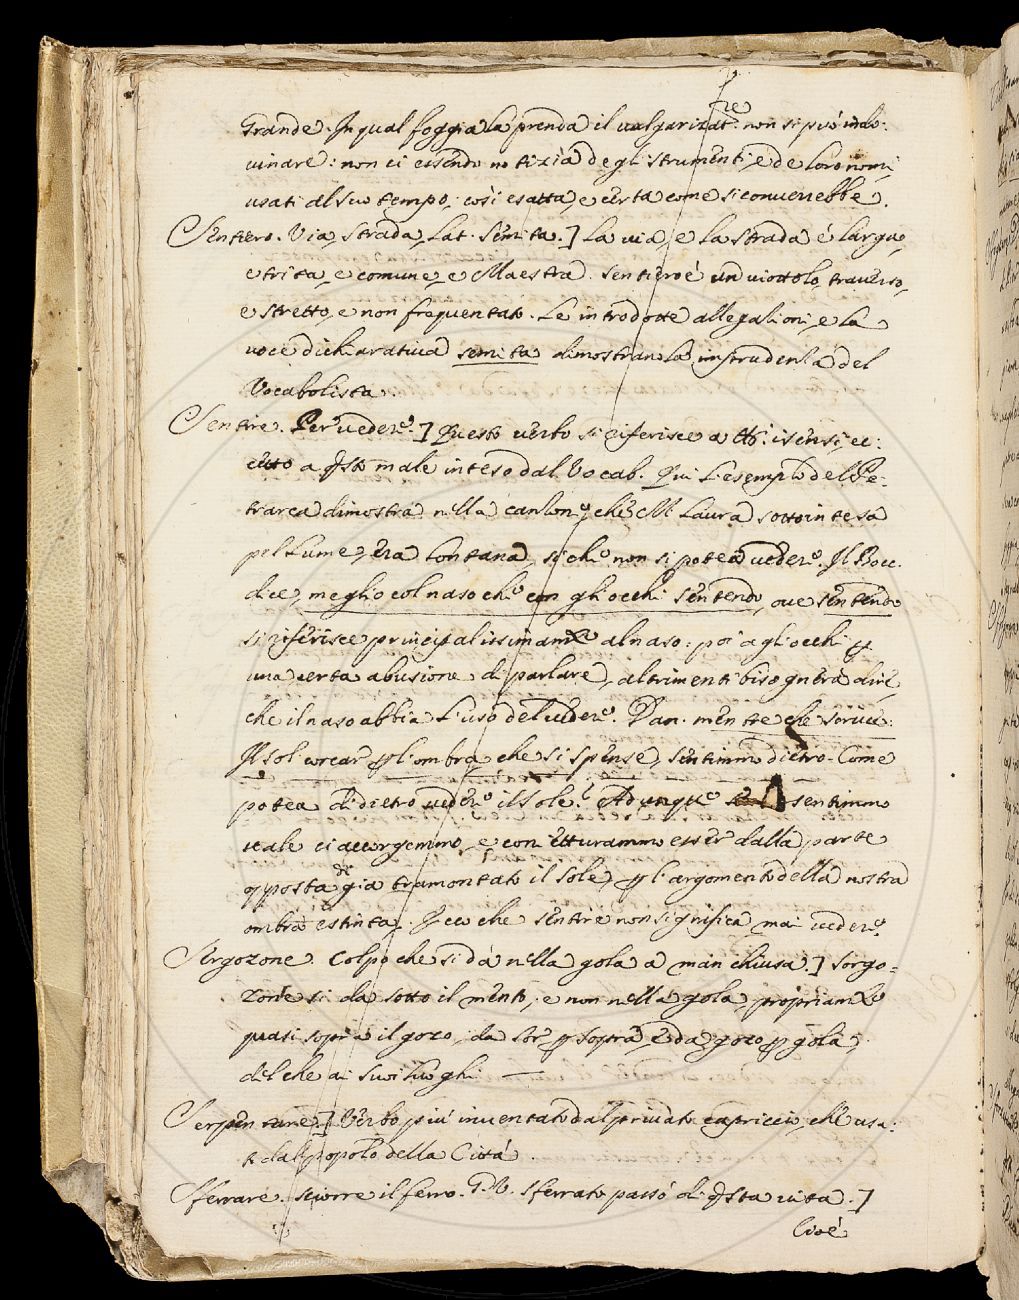 Grande. In qual foggia la prenda il vulgarizat:re non si può indo:
vinare: non ci essendo notizia degli strumenti, e de loro nomi
usati al suo tempo, così esatta, e certa come si converrebbe.
Sentiero. Via, strada, Lat. Semita.] La via, e la strada è larga,
e trita, e comune, e Maestra. sentiero è un viottolo, traverso,
e stretto, e non frequentato. Le introdotte allegazioni, e la
voce dichiarativa semita dimostran la imprudenza del
Vocabolista.
Sentire. Per veder.e] Questo verbo si riferisce a tti i sensi, ec:
cetto a qsto male inteso dal Vocab. Qui l'esempio del Pe:
trarca dimostra nella canzon, che M. Laura sottointesa
pel Lume, era lontana, si che non si potea veder.e Il Bocc.
dice, meglio col naso che con gli occhi sentendo, ove sentendo
si riferisce principalissimam.te al naso: poi agli occhi p
una certa abusione di parlare, altrimenti bisognerà dire,
che il naso abbia l'uso del veder.e Dan. mentre che
Il sol corcar p l'ombra, che si spense, sentimmo dietro. Come
potea di dietro veder.e il sole? Adunque sentimmo
vale ci accorgemmo, e conietturammo esser dalla parte
opposta di già tramontato il sole, p l'argomento della nostra
ombra estinta. Ecco che sentire non significa mai veder.e
Sergozone. Colpo che si dà nella gola a man chiusa.] Sorgo=
zone si dà sotto il mento, e non nella gola, propriam.te
quasi sopra il gozo, da sor p sopra, e da gozo p gola,
del che ai suoi luoghi —
Serpentare] Verbo più inventato dal privato capriccio, che usa:
to dal popolo della Città.
Sferrare. sciorre il ferro. G.V. sferrato passò di qsta vita.]
Cioè